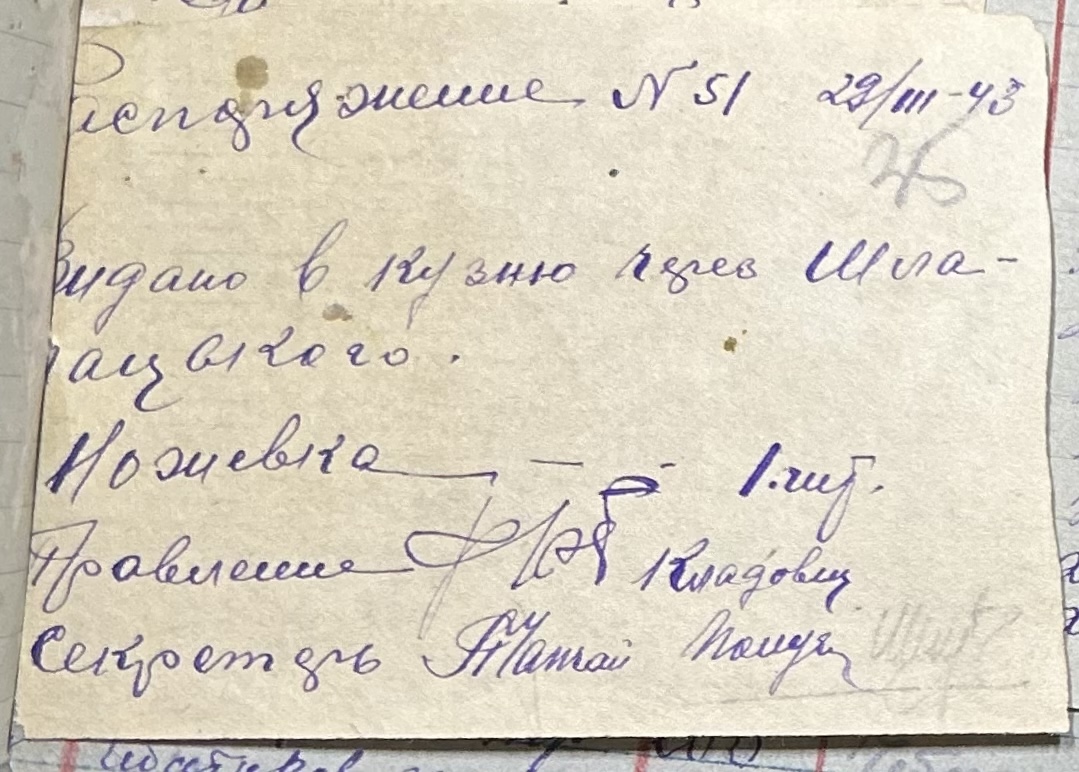 Распоряжение N 51 29/III-43
26
Видано в кузню через Шла-
ковского.
Ножевка — — 1 шт.
Правление Кладовщ
Секретарь Получ